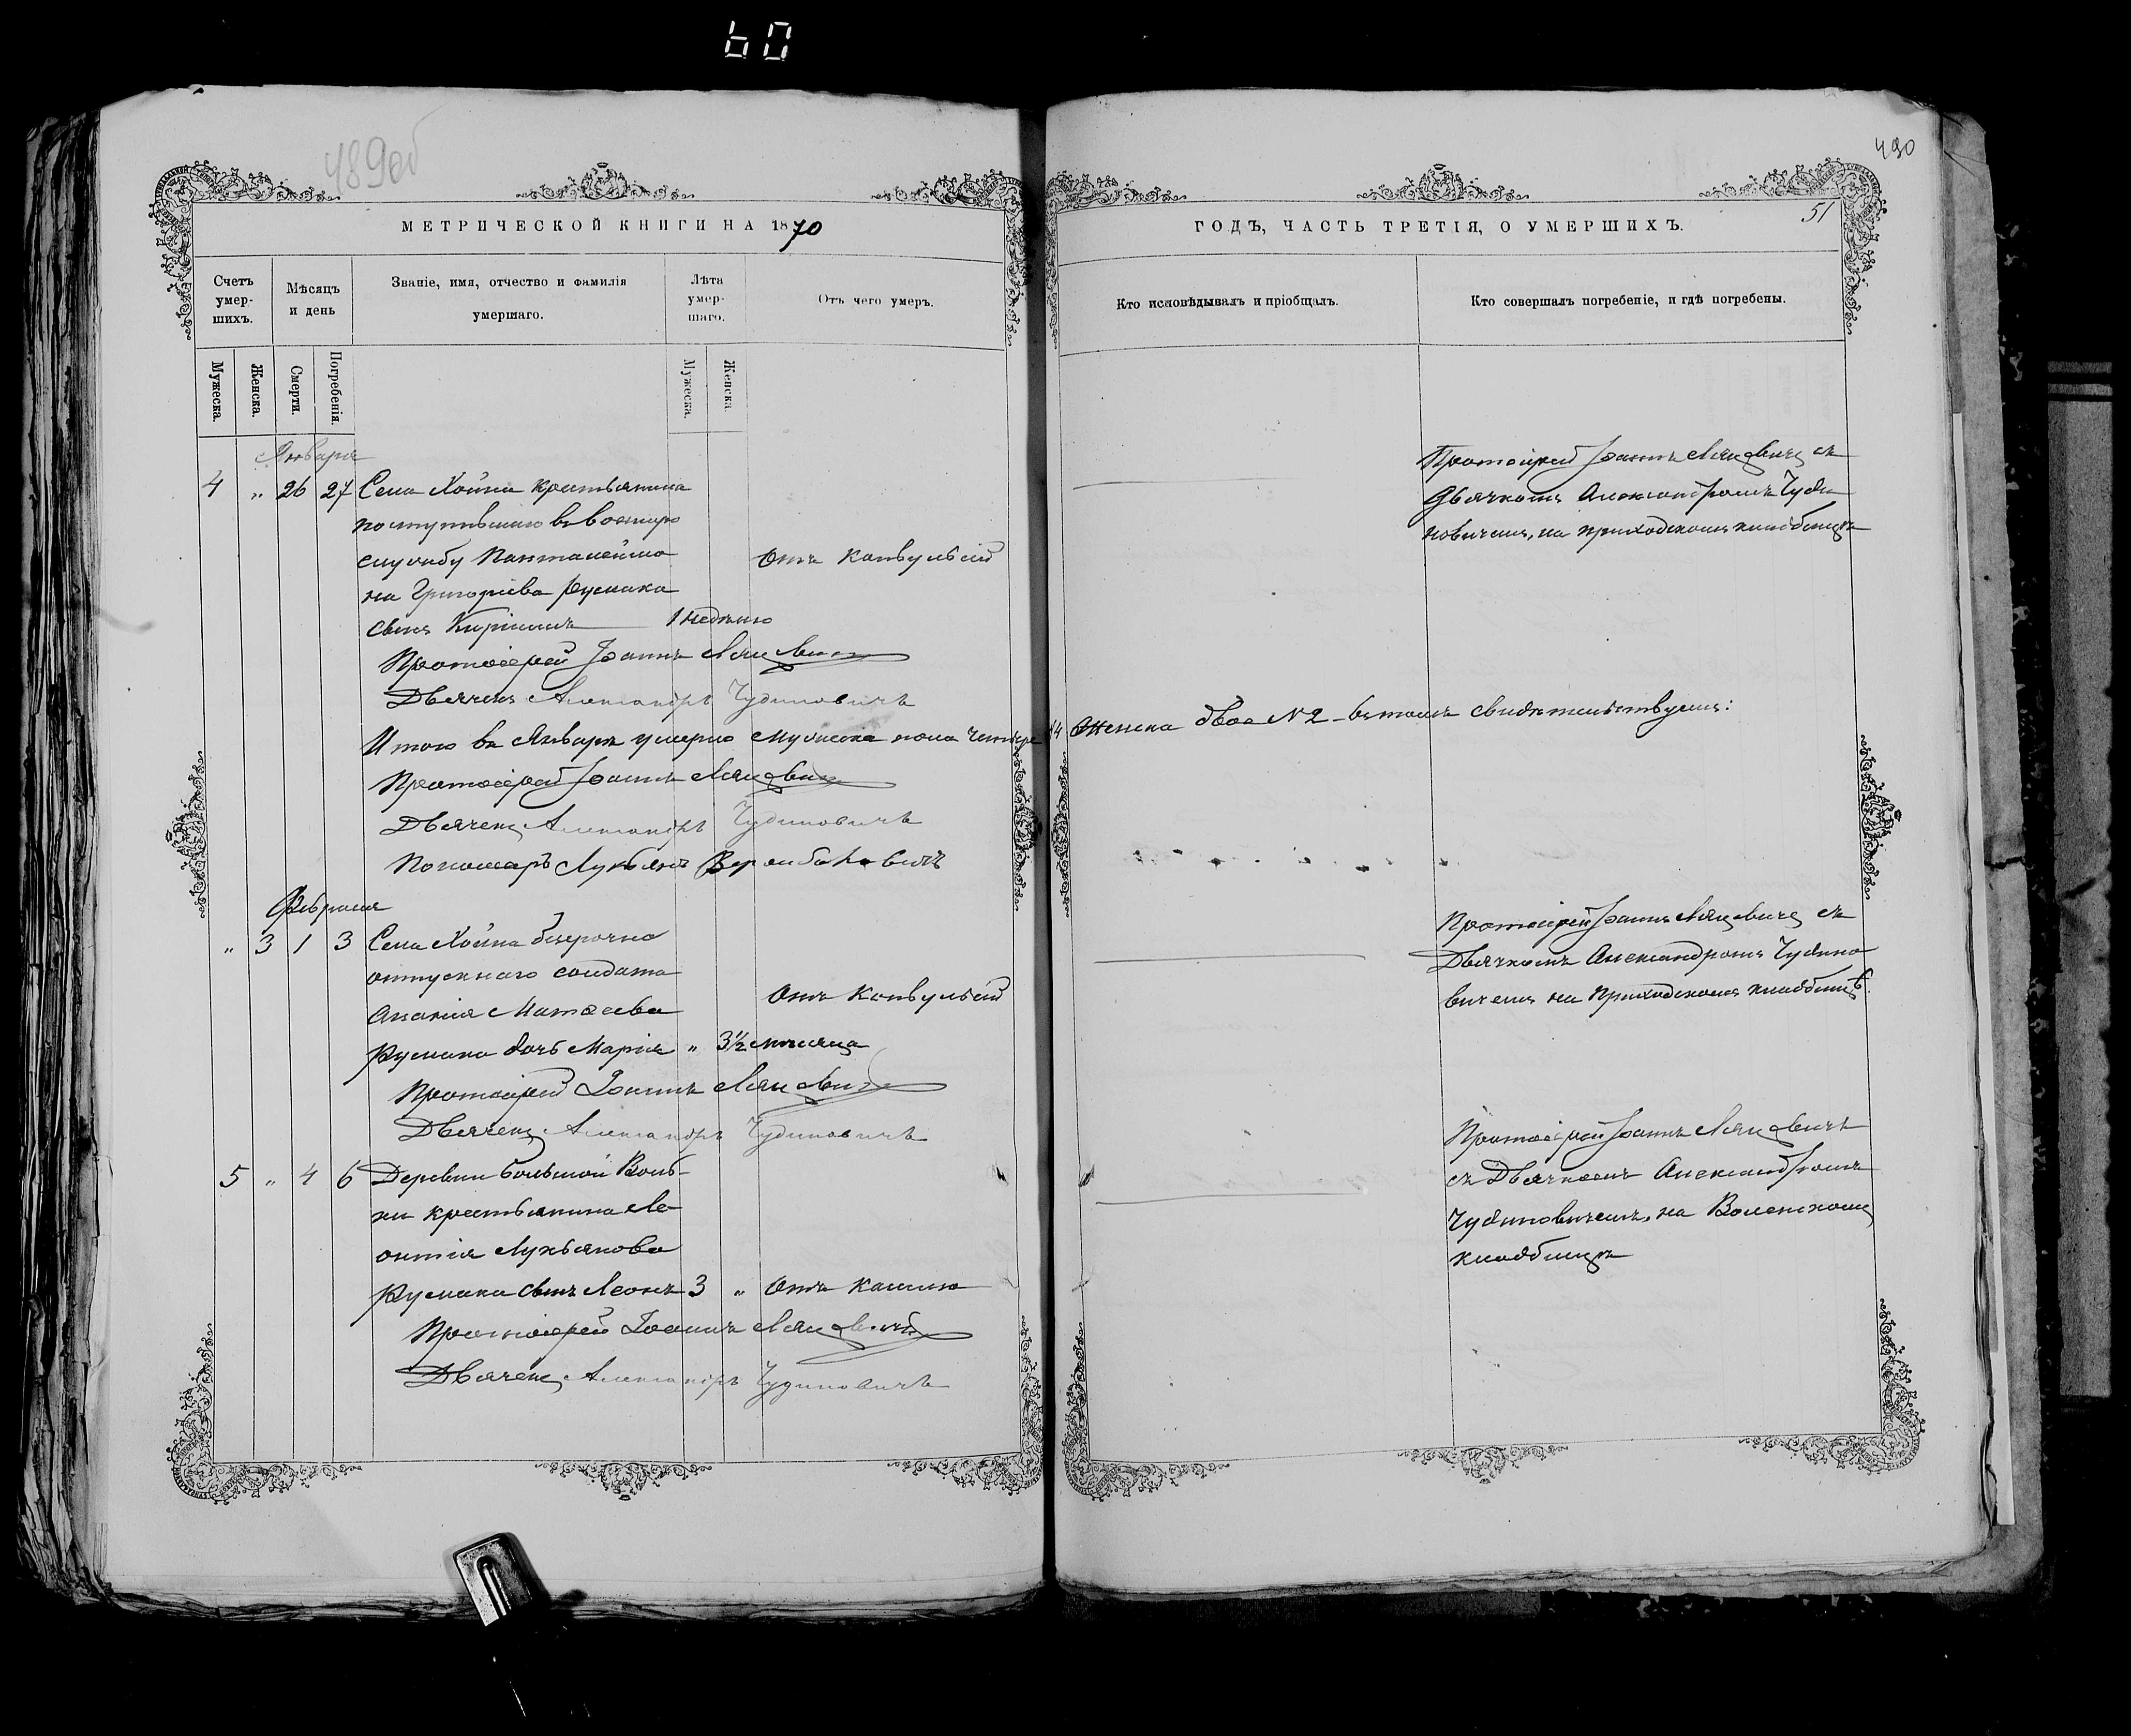 60
489об
490
51
МЕТРИЧЕСКОЙ КНИГИ НА 1870
ГОДЪ, ЧАСТЬ ТРЕТІЯ, О УМЕРШИХЪ.
Счетъ умер-шихъ.
Мѣсяцъ и день
Званіе, имя, отчество и фамилія умершаго.
Лѣта умер-шаго.
Отъ чего умеръ.
Кто исповѣдывалъ и пріобщалъ.
Кто совершалъ погребеніе, и гдѣ погребены.
Мужеска.
Женска.
Смерти.
Погребенія.
Мужеска.
Женска.
Января
4 „ 26 27 Села Хойна крестьянина
поступившаго въ военную
службу Пантелеймо
на Григоріева Русмака
сынъ Кириллъ 1 недѣлю
Отъ конвульсій
Протоіерей Іоаннъ
Дьячекъ Александръ Чудиновичъ
Протоіерей Іоаннъ съ
Дьячкомъ Александромъ Чуди
новичемъ, на приходскомъ кладбищѣ
Итого въ Январѣ умерло мужеска пола четыре 4 Женска двое №2 - въ томъ свидѣтельствуемъ:
Протоіерей Іоаннъ
Дьячекъ Александръ Чудиновичъ
Пономаръ Лукьянъ
Февраля
„ 3 1 3 Села Хойна безсрочно
отпускнаго солдата
Ананія Матвеева
Русмака дочь Марія „ 3½ мѣсяца
Отъ конвульсій
Протоіерей Іоаннъ
Дьячекъ Александръ Чудиновичъ
Протоіерей Іоаннъ съ
Дьячкомъ Александромъ Чудино
вичемъ на приходскомъ кладбищѣ.
5 „ 4 6 Деревни большой Воль-
ки крестьянина Ле
онтія Лукьянова
Русмака сынъ Леонъ 3 „ Отъ кашлю
Протоіерей Іоаннъ
Дьячекъ Александръ Чудиновичъ
Протоіерей Іоаннъ
съ Дьячкомъ Александромъ
Чудиновичемъ, на
кладбищѣ